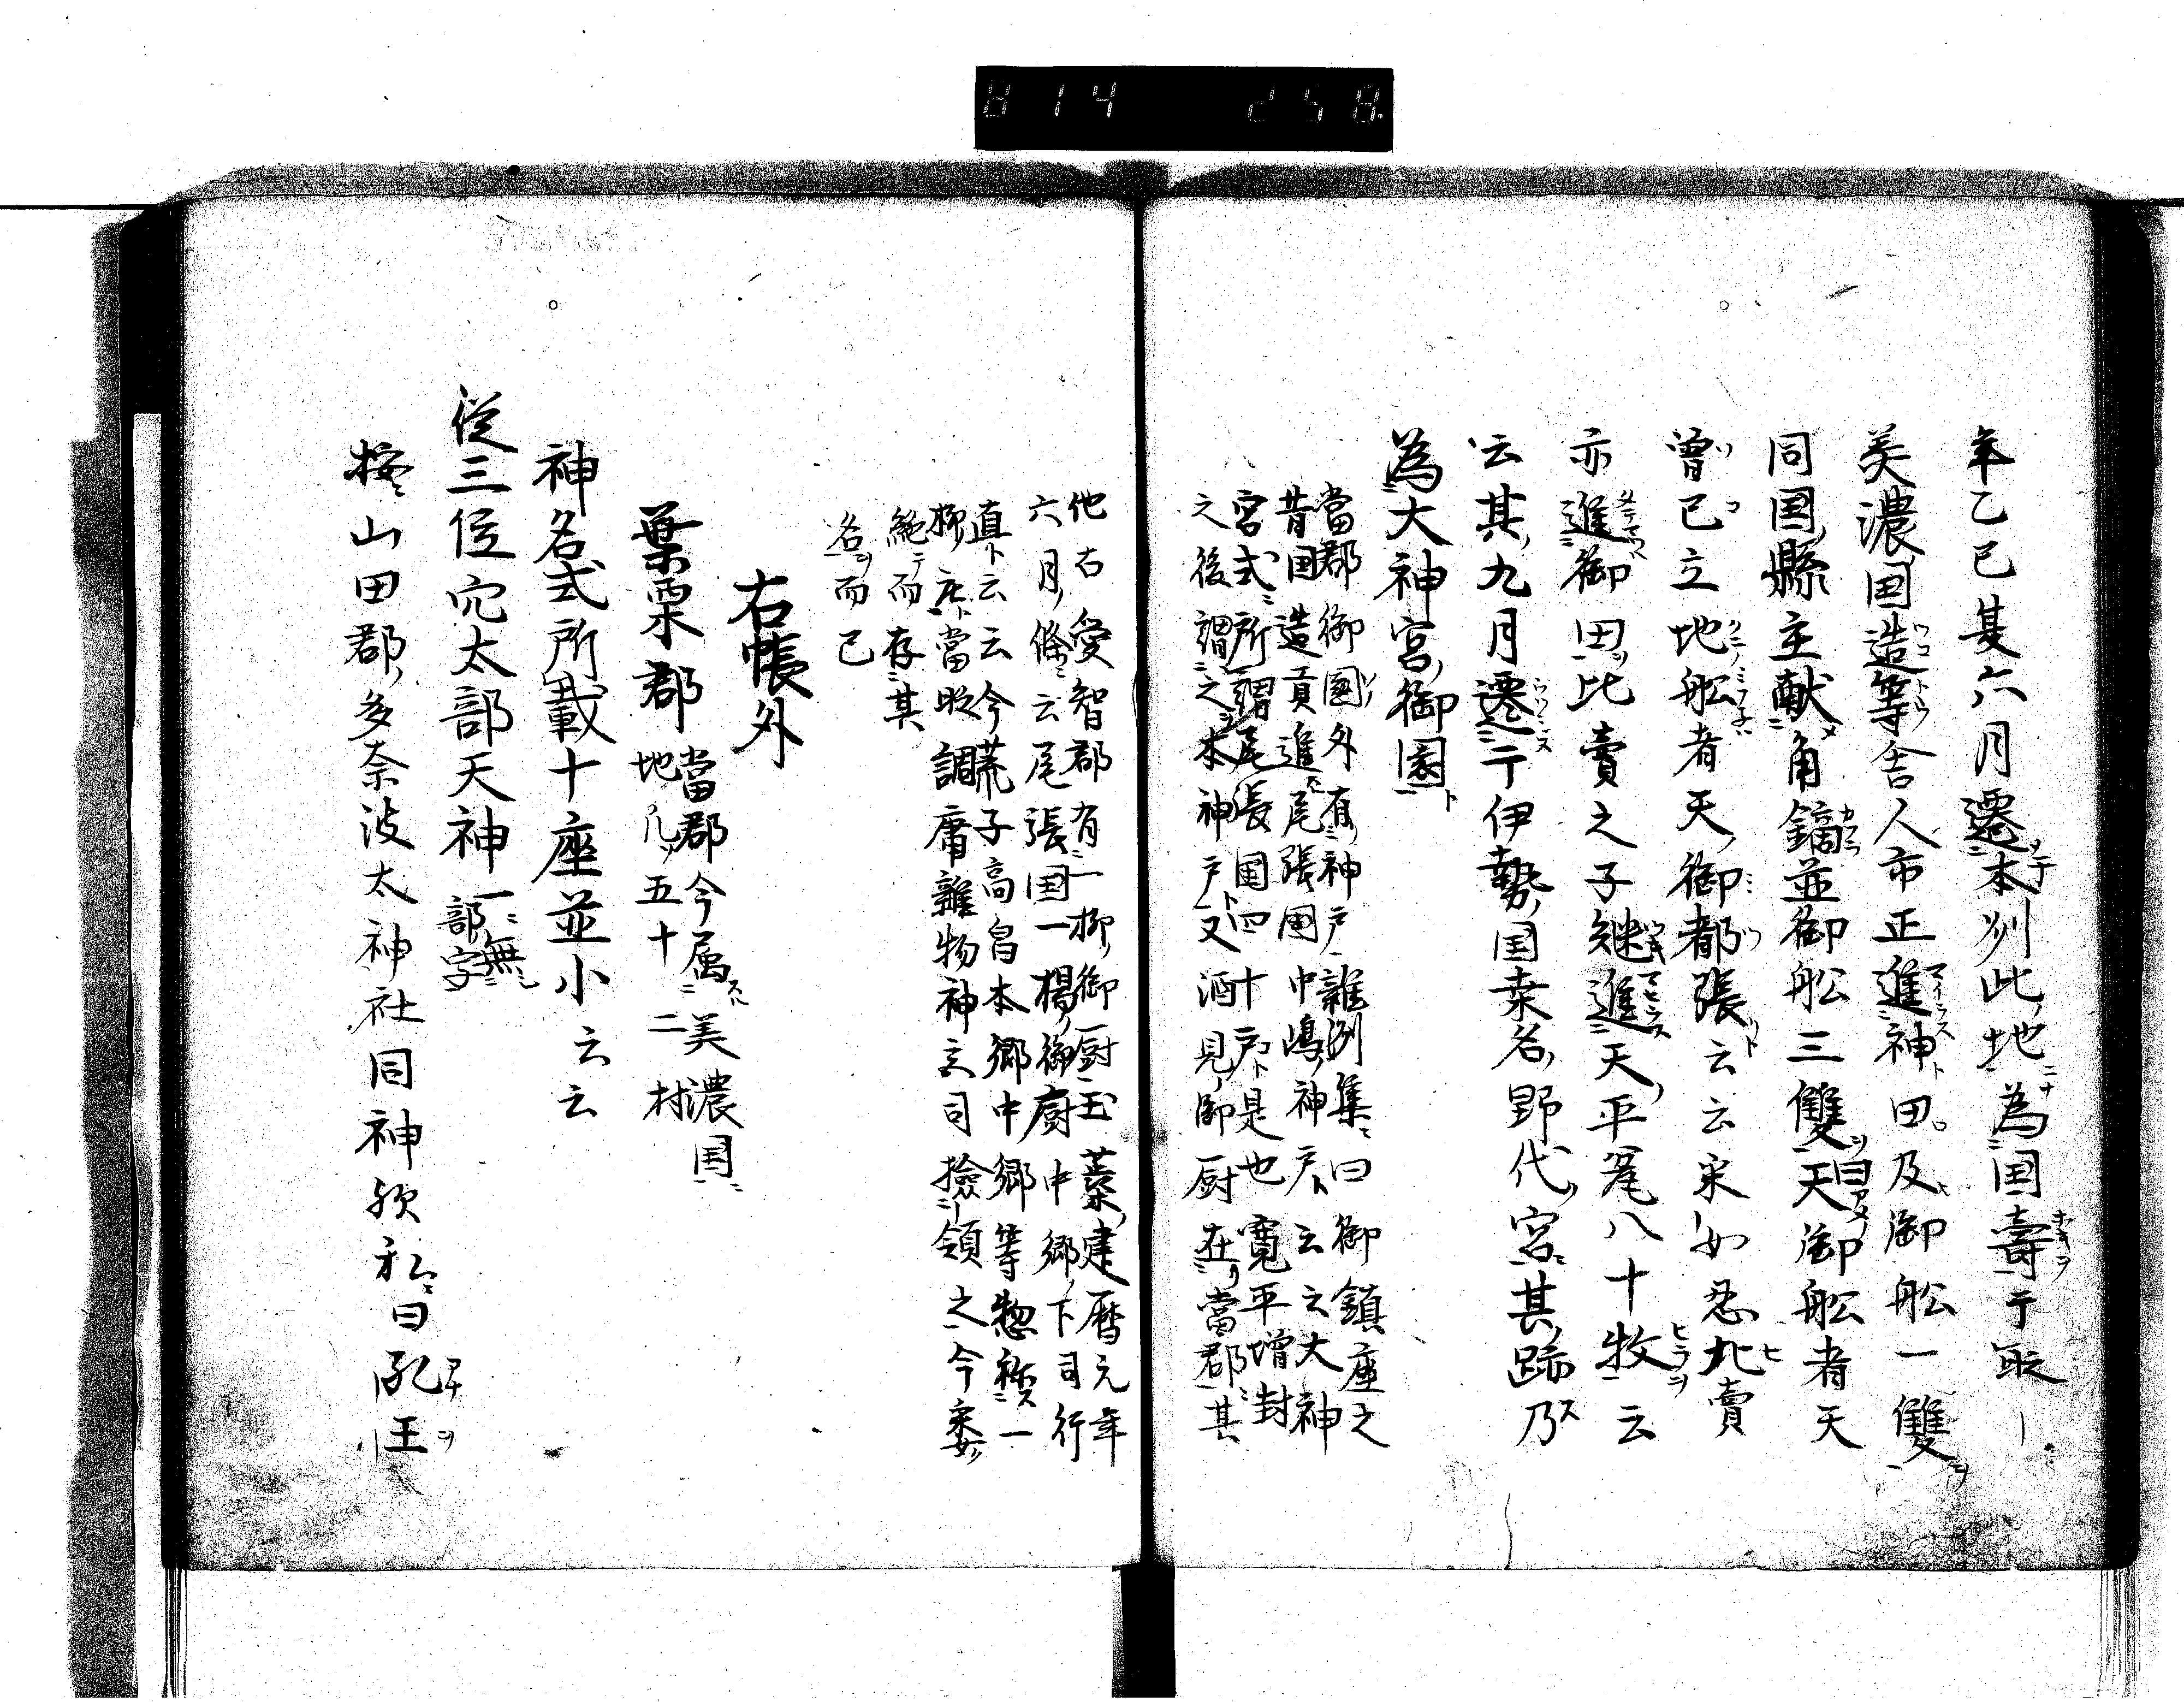 年乙巳夏六月遷本州此地為国壽于殿
美濃国造等舎人市正進神田及御舩一雙
同国縣主献角鏑並御舩三雙曰天御舩者天
曾己立地舩者天御都張云云采女忍比賣
亦進御田比賣之子継進天平瓮八十枚云
云其九月遷于伊勢国桑名野代宮其跡乃
為大神宮御園
當郡御園外有神戸雑例集曰御鎮座之
昔国造貢進尾張国中嶋神戸云云大神
宮式所謂尾張国四十戸是也寛平増封
之後謂之本神戸又酒見御厨在當郡其
他右愛智郡有一柳御厨玉藥建暦元年
六月條云尾張国一楊御厨中郷下司行
直云云今荒子高畠本郷中郷等惣称一
柳庄當時調庸雑物神宮司撿領之今
絶而存其
名而已
右帳外
葉栗郡當郡今属美濃国二
地凡五十村
神名式所載十座並小云云
從三位穴太部天神一無
部字
按山田郡多奈波太神社同神欤私曰孔王
814 258